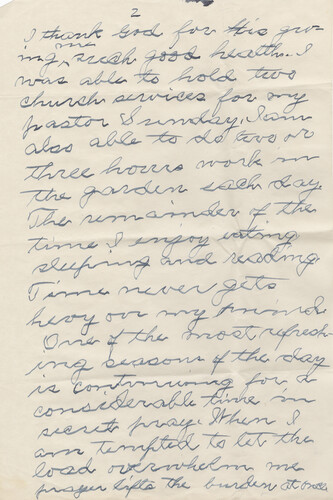 2
I thank God for His giv-
ing me such good health. I
was able to hold two
church services for my
pastor Sunday. I am
also able to do two or
three hours work in
the garden each day.
The remainder of the
time I enjoy eating
sleeping and reading
Time never gets
hevy on my mind.
One of the most refresh-
ing seasons of the day
is continuing for a
considerable time in
secret pray. When I
am tempted to let the
load overwhelm me
prayer lifts the burden at once